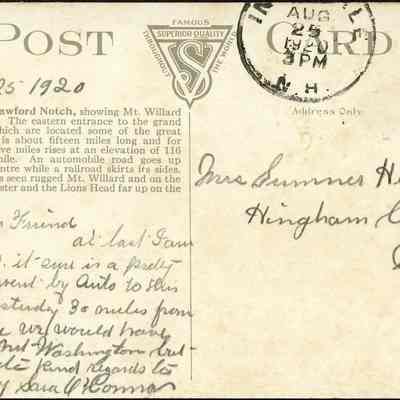 POST
FAMOUS
SUPERIOR QUALITY
THROUGHOUT THE WORLD
CARD
AUG
25
1920
3 PM
N.H.
25 1920
Address Only
awford Notch, showing Mt. Willard
The eastern entrance to the grand
hich are located some of the great
is about fifteen miles long and for
ve miles rises at an elevation of 116
ile. An automobile road goes up
ntre while a railroad skirts its sides.
is seen rugged Mt. Willard and on the
ster and the Lions Head far up on the
Friend
at last I am
it sure is a pretty
went by Auto to
esterday 30 miles from
e we would have
Mt Washington but
kind regards to
Sara O'Connor
Mrs Sumner H
Hingham C